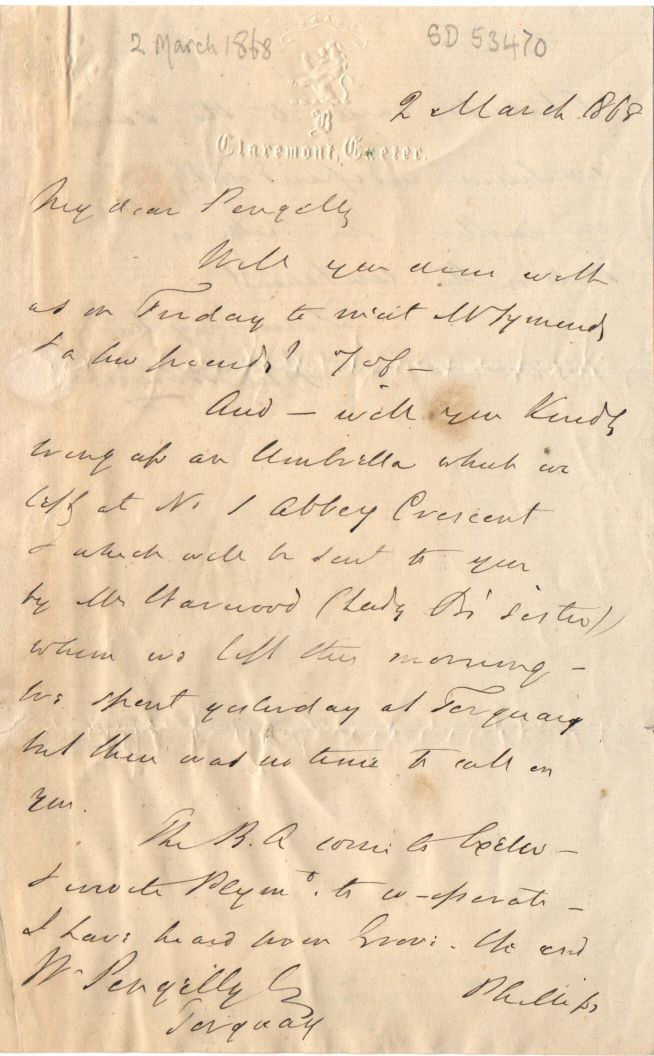 2 March 1868
SD 53470
2 March 1868
B
Claremont, Exeter.
My dear Pengelly
Will you dine with
us on Friday to meet Mr Symonds
& a few friends? 7 of —
And — will you kindly
bring up an Umbrella which we
left at No 1 Abbey Crescent
& which will be sent to you
by Mrs Harwood (Lady B's sister)
whom we left this morning —
We spent yesterday at Torquay
but there was no time to call on
you.
The B. A come to Exeter —
& invite Plymo. to co-operate —
I have heard from Grove. He and
Phillips
Wm Pengelly Esq
Torquay